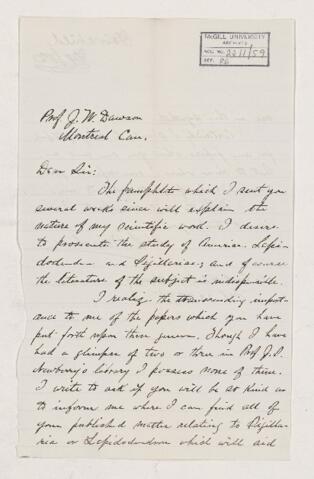 McGILL UNIVERSITY
ARCHIVES
ACC. NO. 2211/59
REF.
Prof J. W. Dawson
Montreal Can.
Dear Sir:
The pamphlet which I sent you
several weeks since will explain the
nature of my scientific work. I desire
to prosecute the study of American Lepi-
dodendra and Sigillariae; and of course
the literature of the subject is indispensible.
I realize the transcending import-
ance to me of the papers which you have
put forth upon these genera. Though I have
had a glimpse of two or three in Prof J. S.
Newberry's library I possess none of them.
I write to ask if you will be so kind as
to inform me where I can find all of
your published matter relating to Sigilla-
ria or Lepidodendron which will aid